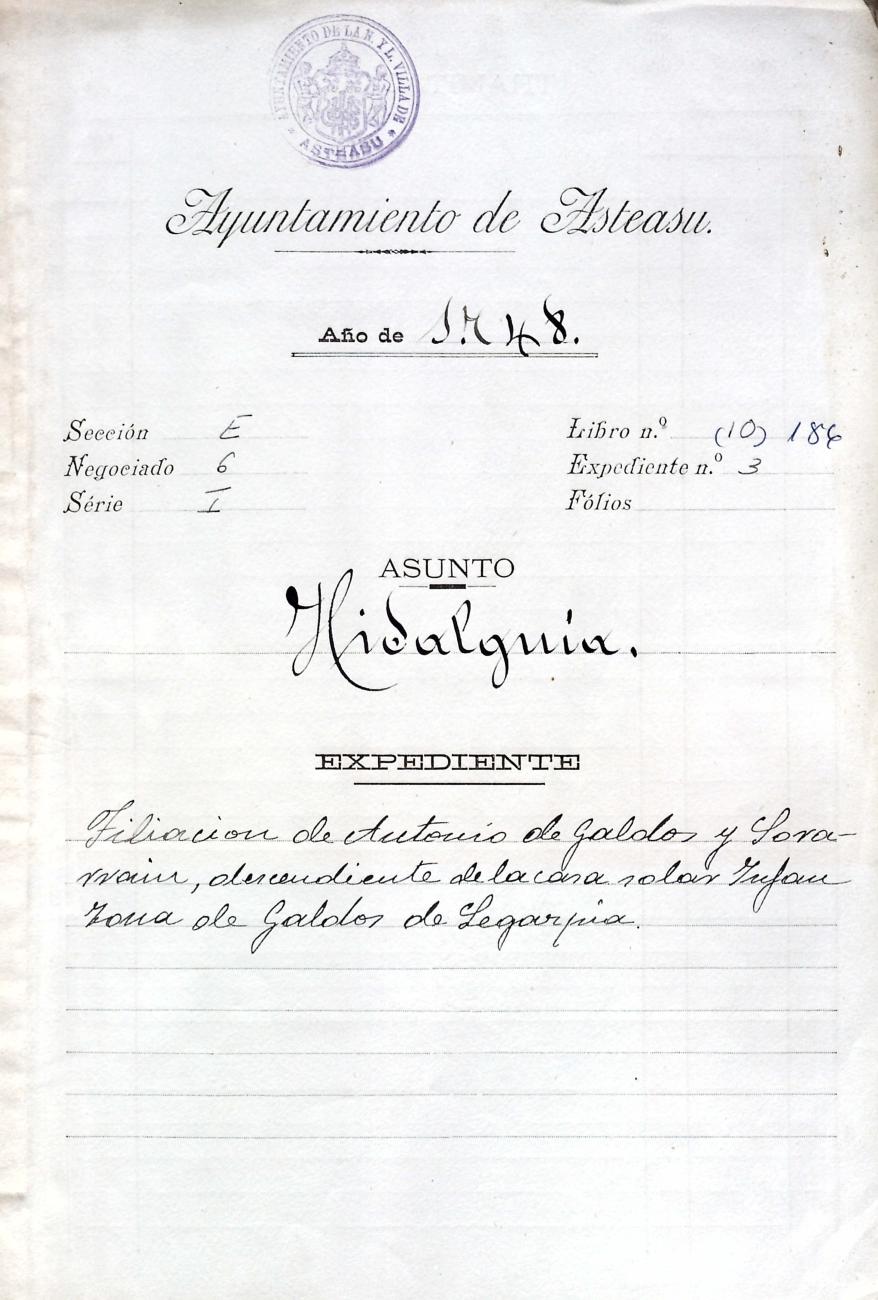 AYUNTAMIENTO DE LA N. Y L. VILLA DE
* ASTEASU *
Ayuntamiento de Asteasu.
Año de 1.748.
Sección E
Libro n.º (10) 186
Negociado 6
Expediente n.º 3
Série I
Fólios
ASUNTO
Hidalguía.
EXPEDIENTE
Filiacion de Antonio de Galdos y Sora-
rrain, descendiente de la casa solar Infan
zona de Galdos de Legazpia.